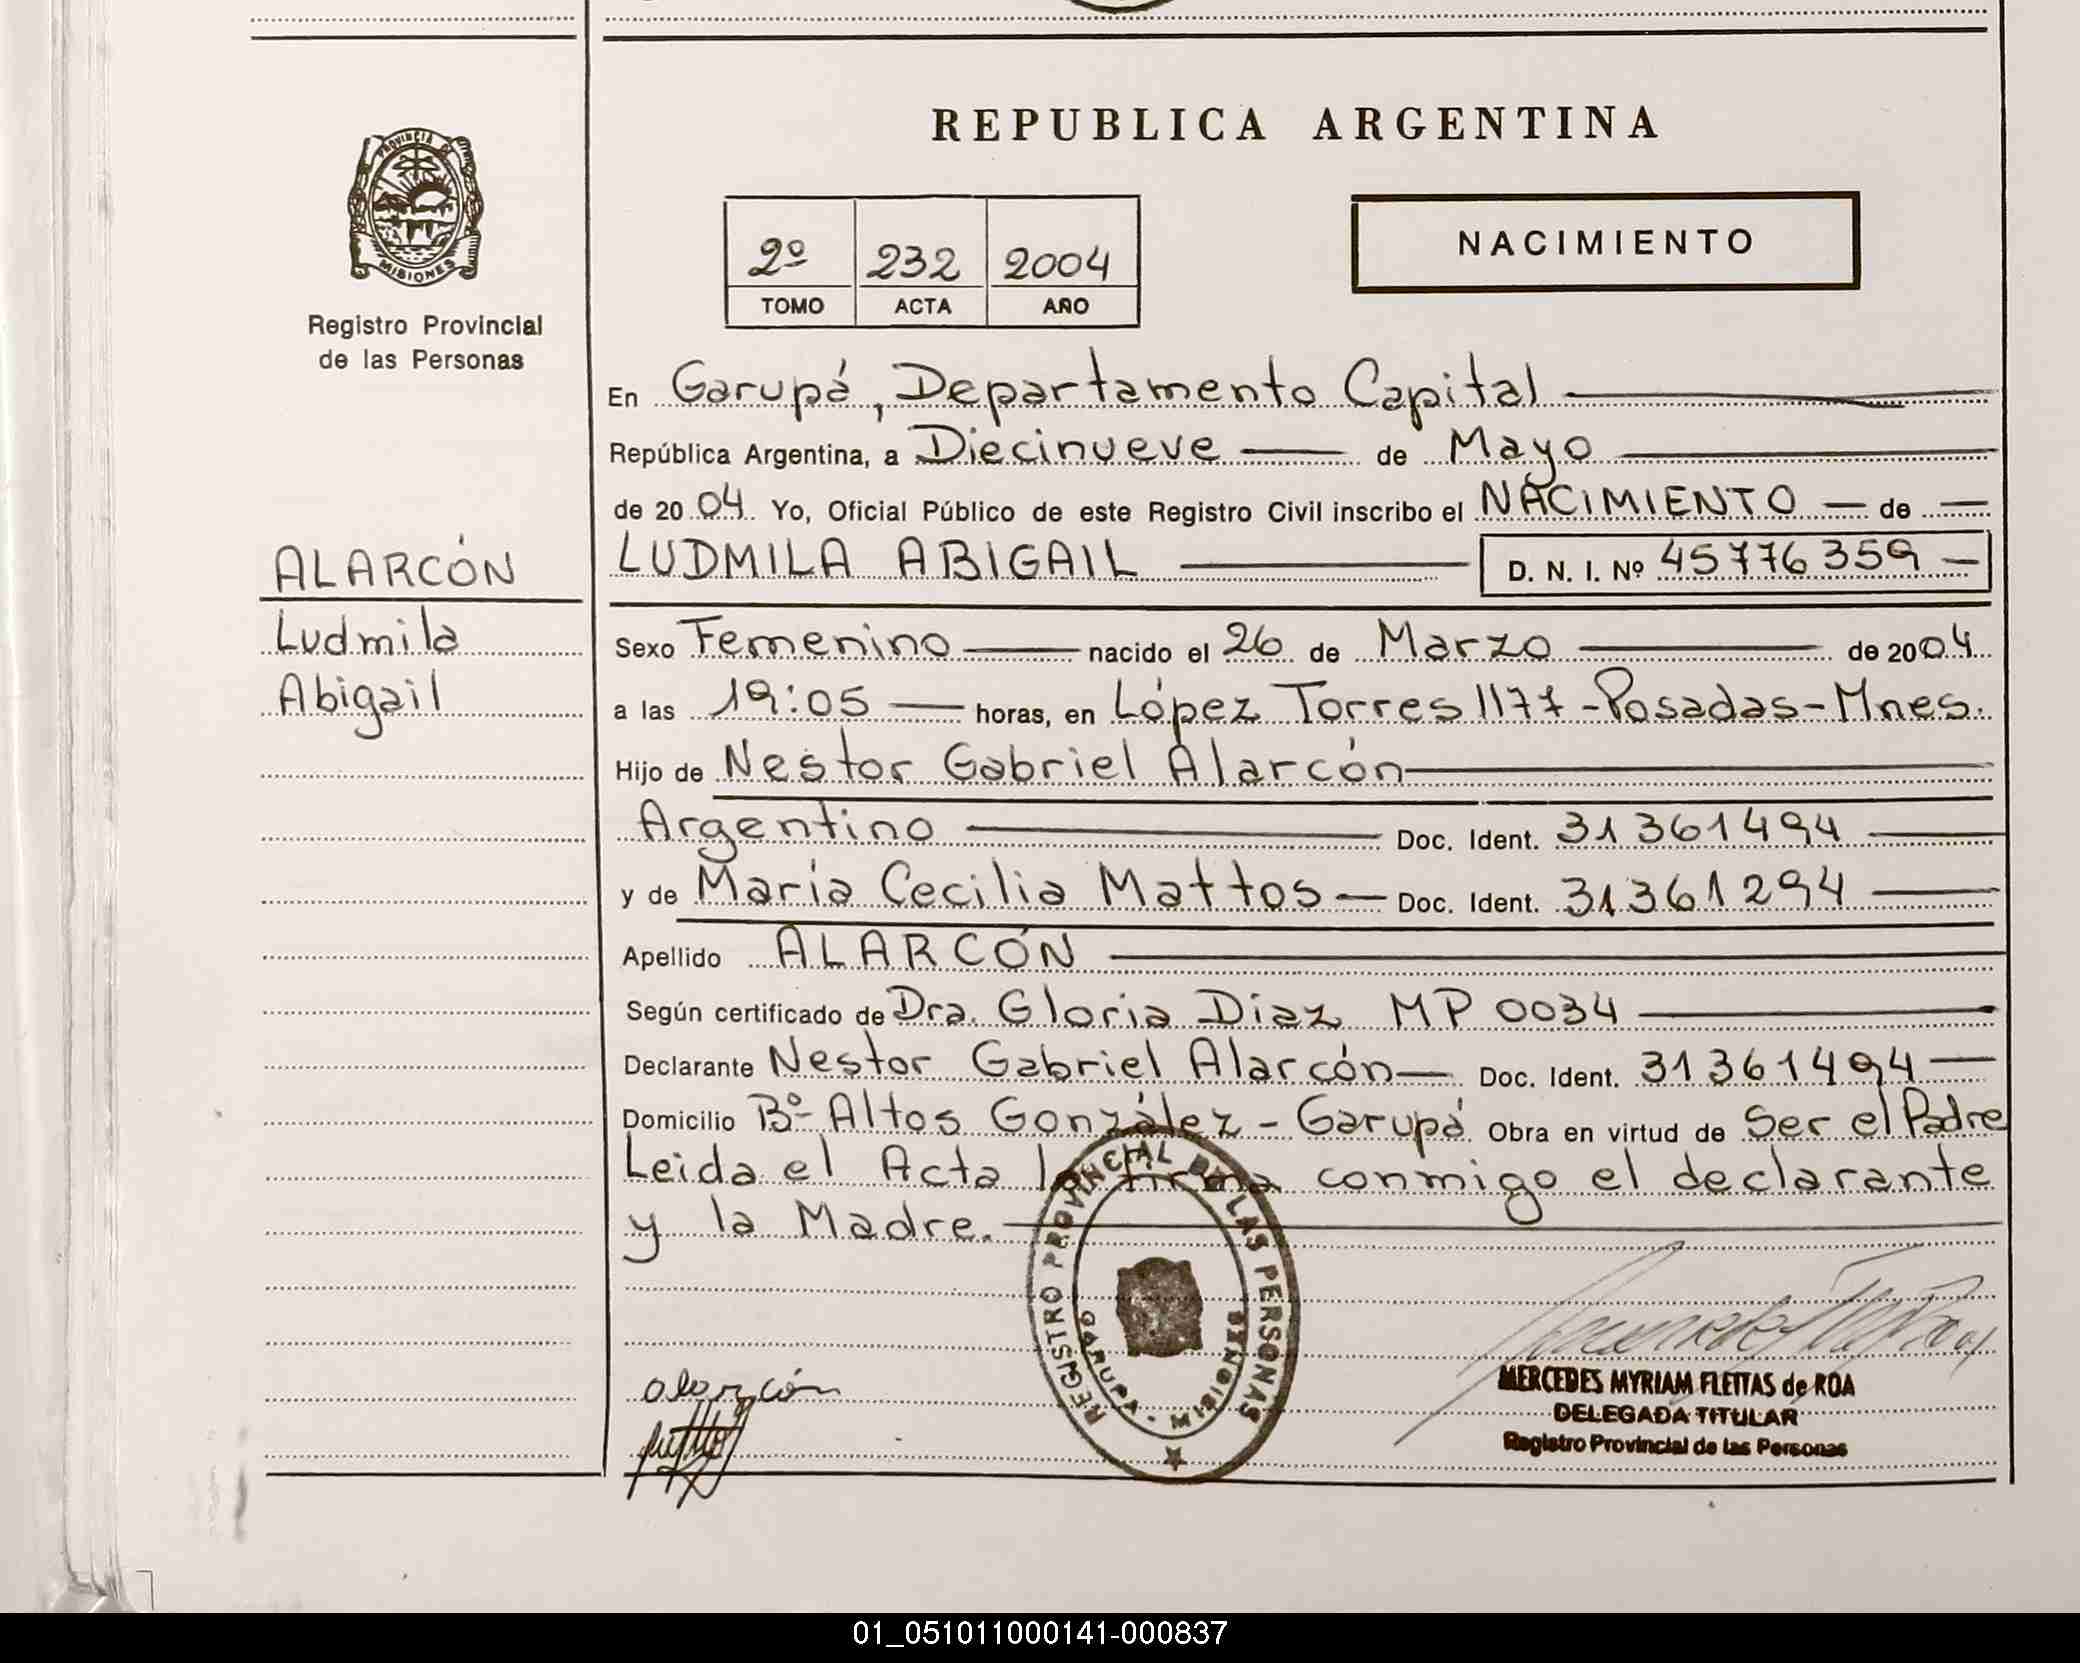 REPUBLICA ARGENTINA
PROVINCIA DE
MISIONES
Registro Provincial
de las Personas
2º 232 2004
TOMO ACTA AÑO
NACIMIENTO
En Garupá, Departamento Capital
República Argentina, a Diecinueve de Mayo
de 2004 Yo, Oficial Público de este Registro Civil inscribo el NACIMIENTO de
ALARCÓN
Ludmila
Abigail
LUDMILA ABIGAIL D. N. I. Nº 45776359
Sexo Femenino nacido el 26 de Marzo de 2004
a las 19:05 horas, en López Torres 1177-Posadas-Mnes.
Hijo de Nestor Gabriel Alarcón
Argentino Doc. Ident. 31361494
y de María Cecilia Mattos Doc. Ident. 31361294
Apellido ALARCÓN
Según certificado de Dra. Gloria Díaz MP 0034
Declarante Nestor Gabriel Alarcón Doc. Ident. 31361494
Domicilio Bº Altos González - Garupá Obra en virtud de Ser el Padre
Leida el Acta la firma conmigo el declarante
y la Madre.
REGISTRO PROVINCIAL DE LAS PERSONAS
GARUPA - MISIONES
alarcón
MERCEDES MYRIAM FLEITAS de ROA
DELEGADA TITULAR
Registro Provincial de las Personas
01_051011000141-000837